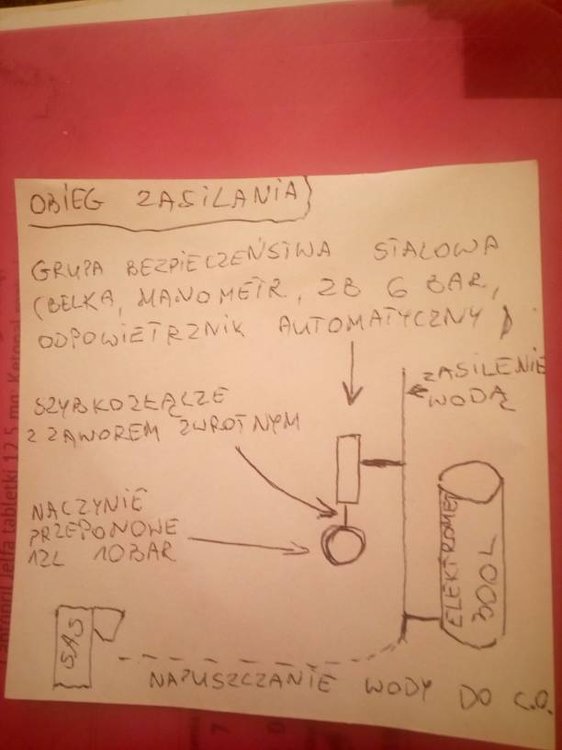 OBIEG ZASILANIA
GRUPA BEZPIECZEŃSTWA STALOWA
(BELKA, MANOMETR, ZB 6 BAR,
ODPOWIETRZNIK AUTOMATYCZNY)
ZASILENIE
WODĄ
SZYBKOZŁĄCZE
Z ZAWOREM ZWROTNYM
NACZYNIE
PRZEPONOWE
12L 10BAR
ELEKTROMET
300L
SAS
NAPUSZCZANIE WODY DO C.O.
tabletki 12,5 mg